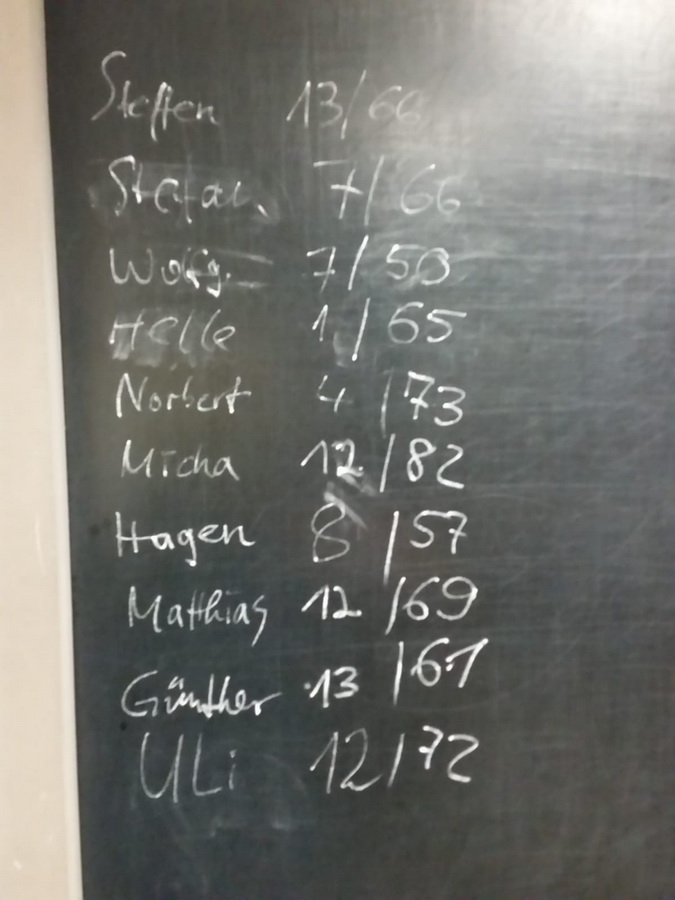 Steffen 13/66
Stefan 7/66
Wolfg. 7/50
Helle 1/65
Norbert 4/73
Micha 12/82
Hagen 8/57
Matthias 12/69
Günther 13/61
ULi 12/72